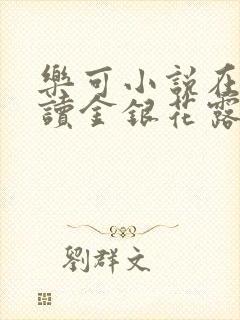 樂可小説在
讀金銀花露
劉群文